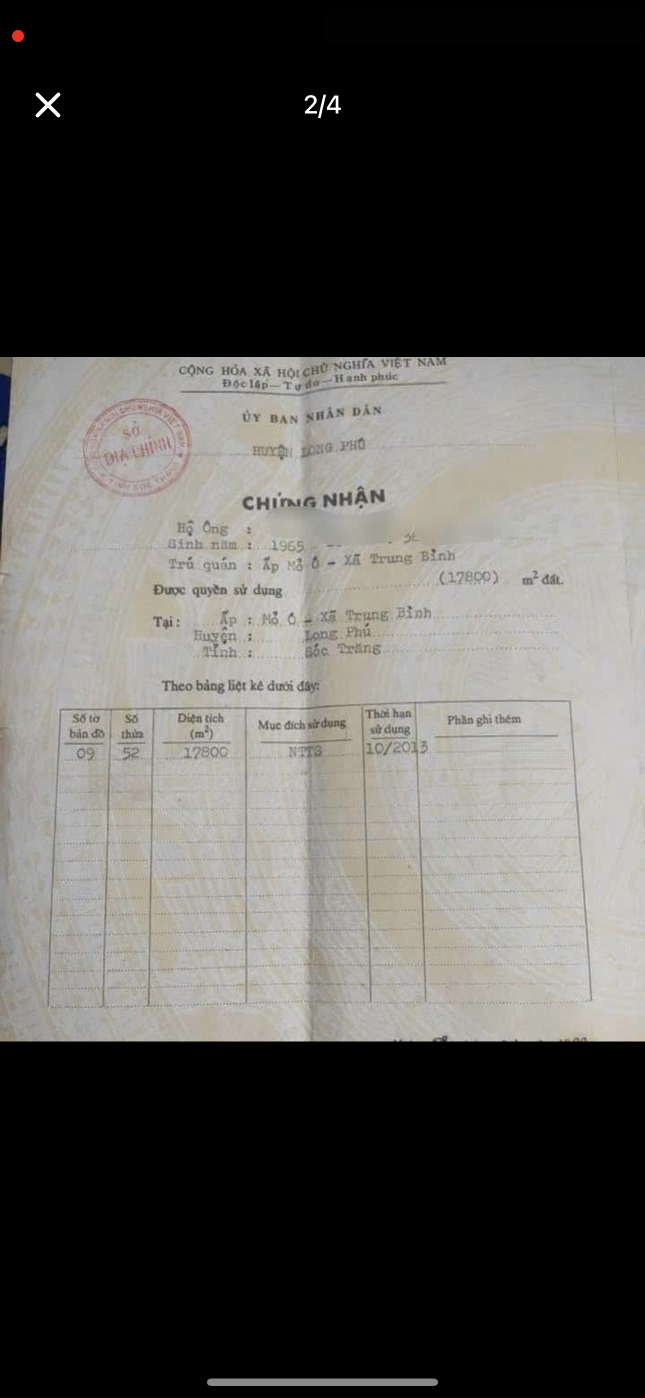 2/4
CỘNG HÒA XÃ HỘI CHỦ NGHĨA VIỆT NAM
Độc lập — Tự do — Hạnh phúc
ỦY BAN NHÂN DÂN
HUYỆN LONG PHÚ
SỞ
ĐỊA CHÍNH
CHỨNG NHẬN
Hộ Ông :
Sinh năm : 1965
Trú quán : Ấp Mỏ Ó - Xã Trung Bình
Được quyền sử dụng (17800) m² đất.
Tại : Ấp : Mỏ Ó - Xã Trung Bình
Huyện : Long Phú
Tỉnh : Sóc Trăng
Theo bảng liệt kê dưới đây:
Số tờ bản đồ Số thửa Diện tích (m²) Mục đích sử dụng Thời hạn sử dụng Phần ghi thêm
09 52 17800 NTTS 10/2013